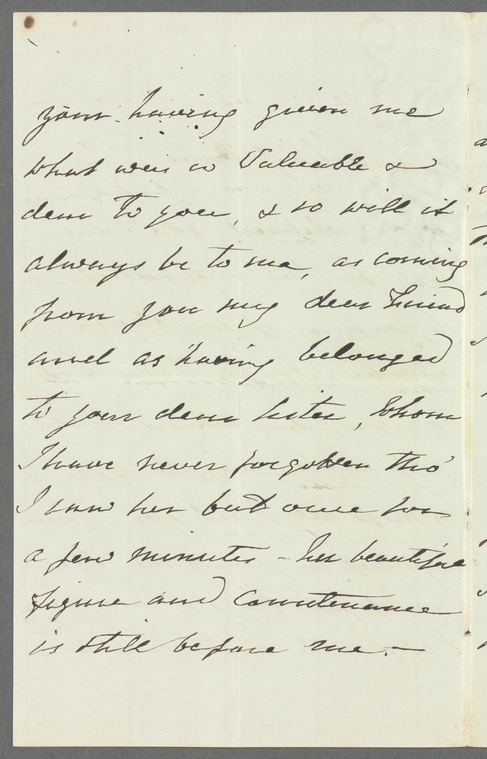 your having given me
what was so Valuable &
dear to you, & so will it
always be to me, as coming
from you my dear Friend
and as having belonged
to your dear Sister, Whom
I have never forgotten tho'
I saw her but once for
a few minutes - her beautiful
figure and Countenance
is still before me.-